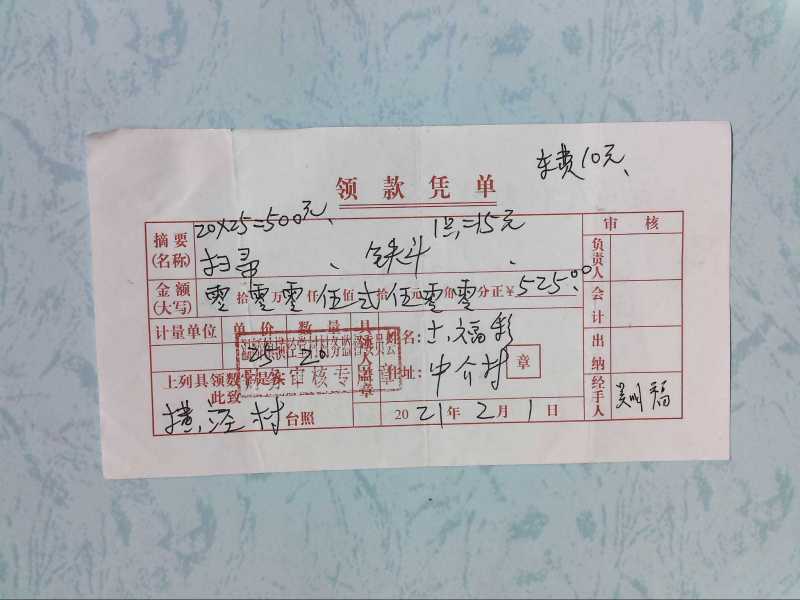 车费10元、
领款凭单
20×25=500元、 1只,=15元
审核
摘要(名称) 扫帚、铁斗、
负责人
金额(大写) 零拾零万零仟伍佰弍拾伍元零角零分正¥525.00
会计
计量单位 单价 数量 具领人盖章 姓名: 福彩
25 20
出纳
住址: 中介村 章
上列具领数量是实
财务审核专用章
此致
经手人 福
横泾村台照 2021年2月1日